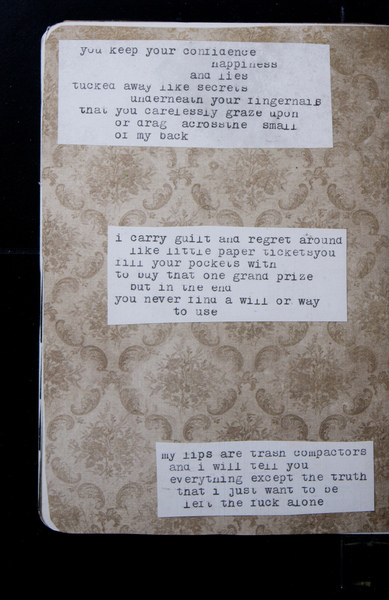 you keep your confidence
happiness
and lies
tucked away like secrets
underneath your fingernails
that you carelessly graze upon
or drag acrossthe small
of my back
i carry guilt and regret around
like little paper ticketsyou
fill your pockets with
to buy that one grand prize
but in the end
you never find a will or way
to use
my lips are trash compactors
and i will tell you
everything except the truth
that i just want to be
left the fuck alone